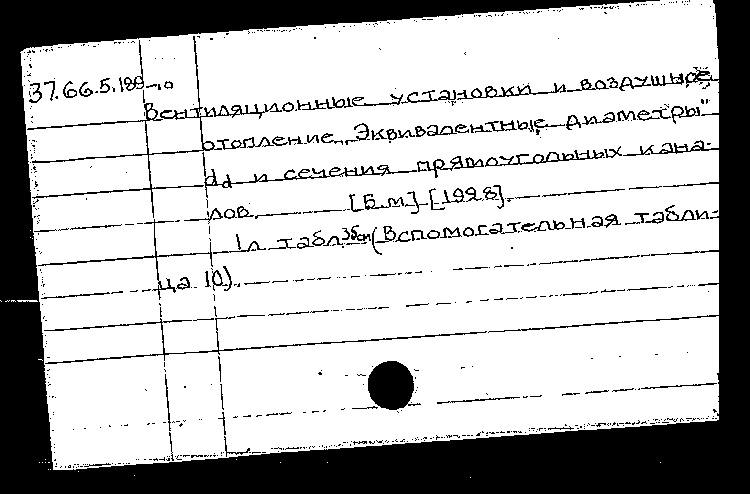 37.66.5.189-10
Вентиляционные установки и воздушное
отопление. „Эквивалентные диаметры"
dd и сечения прямоугольных кана-
лов. [Б.м] [1928].
1л табл. (Вспомогательная табли-
ца 10).